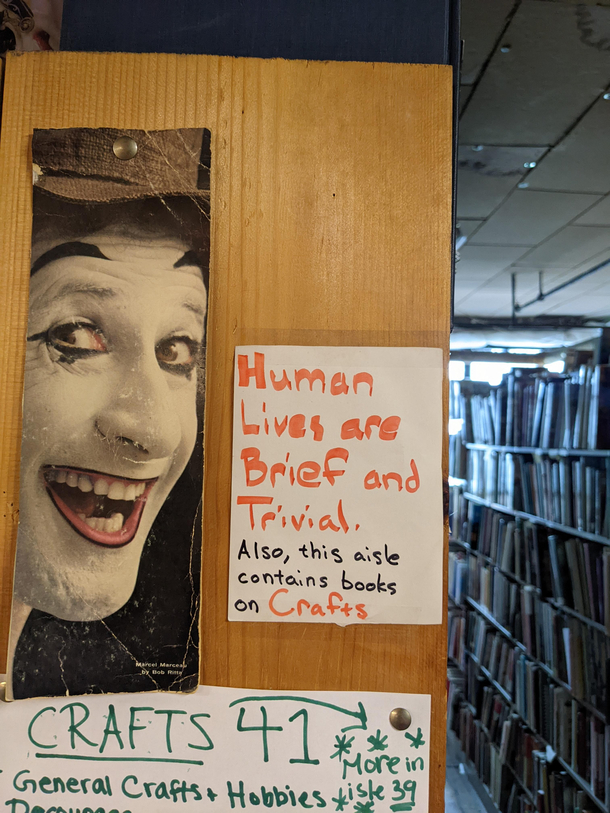 Marcel Marceau
by Bob Ritta
Human
Lives are
Brief and
Trivial.
Also, this aisle
contains books
on Crafts
CRAFTS 41
More in
isle 39
General Crafts + Hobbies
Decoupage